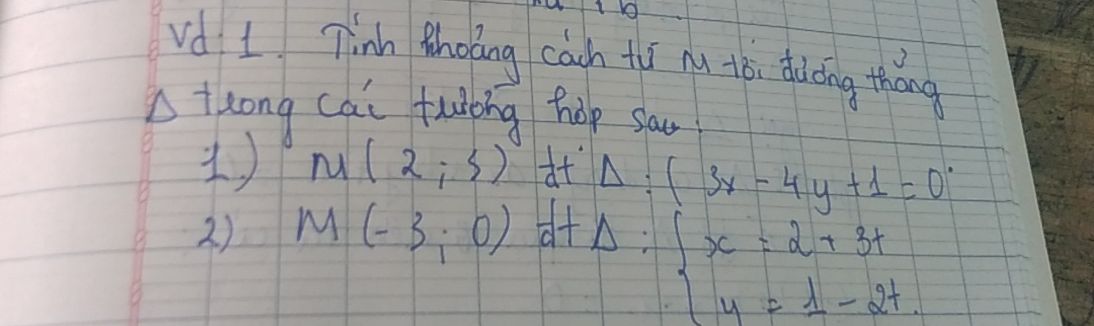 Vd 1. Tính khoảng cách từ M tới đường thẳng
Δ trong các trường hợp sau
1.) M( 2 ; 3) đt Δ : ( 3x - 4y + 1 = 0
2) M (- 3 ; 0) đt Δ : { x = 2 + 3t
y = 1 - 2t.